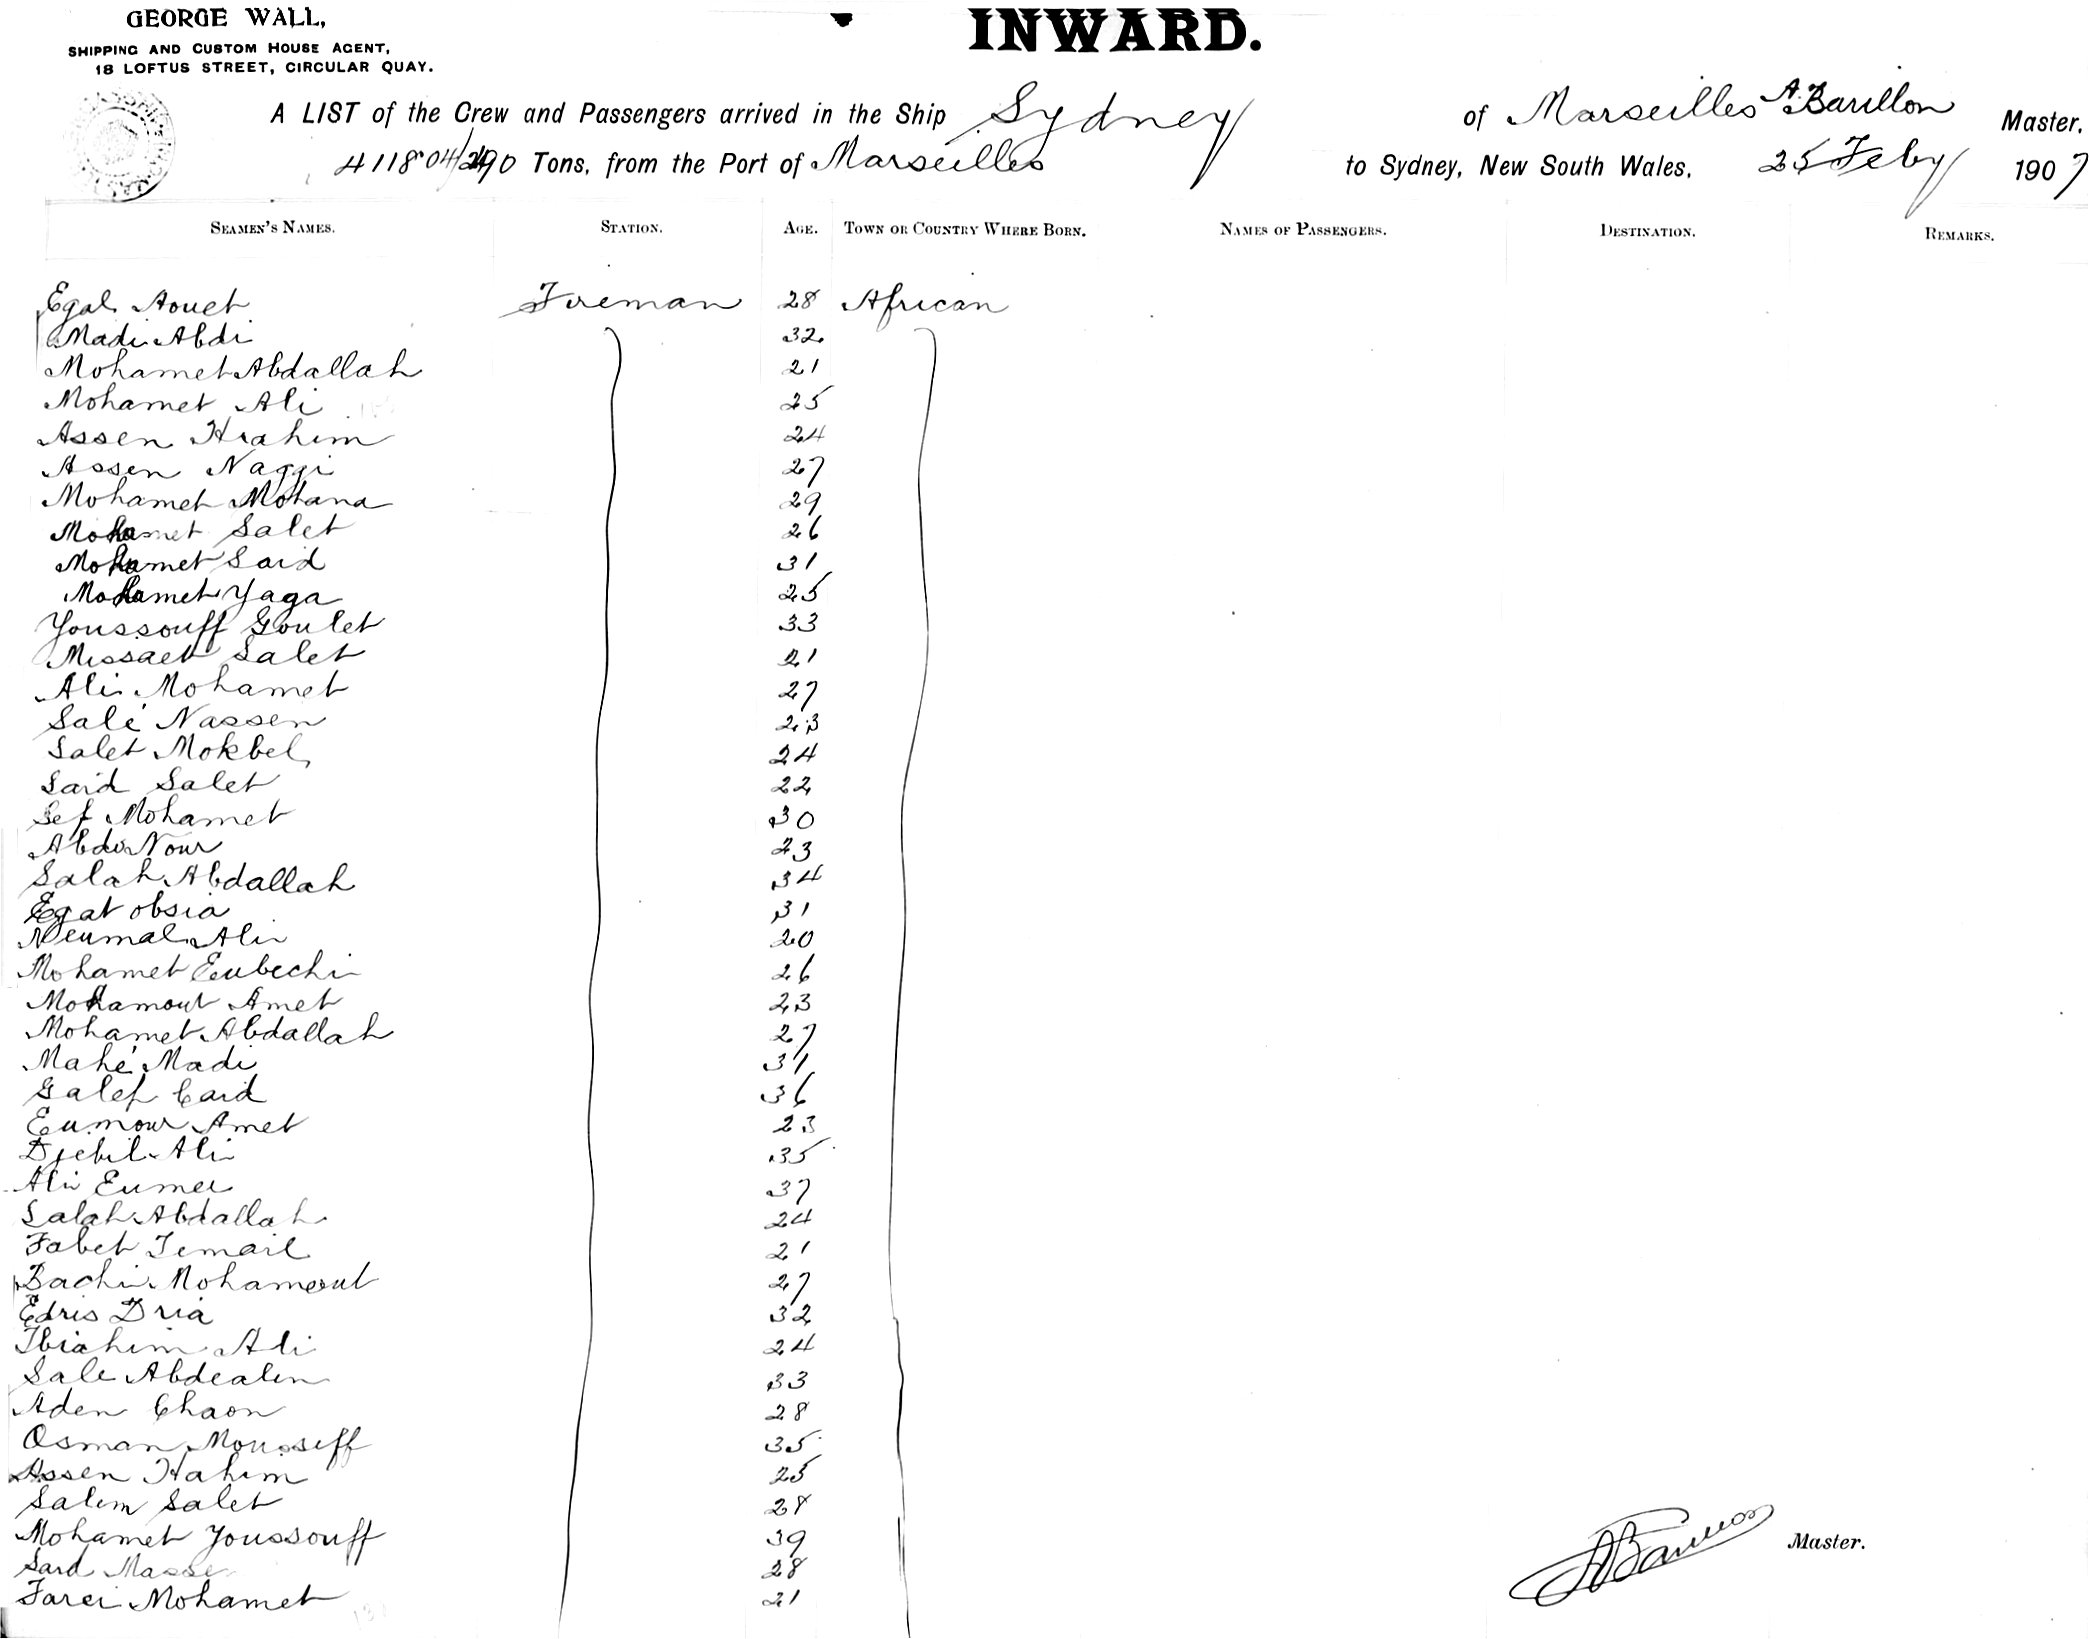 GEORGE WALL,
SHIPPING AND CUSTOM HOUSE AGENT,
18 LOFTUS STREET, CIRCULAR QUAY.
INWARD.
A LIST of the Crew and Passengers arrived in the Ship Sydney of Marseilles A. Barillon Master,
Tons, from the Port of Marseilles to Sydney, New South Wales, 25 Feby 1907
SEAMEN'S NAMES. STATION. AGE. TOWN OR COUNTRY WHERE BORN. NAMES OF PASSENGERS. DESTINATION. REMARKS.
Egal Aouet Fireman 28 African
Madi Abdi 32
Mohamet Abdallah 21
Mohamet Ali 25
Assen 24
Assen Naggi 27
Mohamet Motana 29
Mohamet Salet 26
Mohamet Said 31
Mohamet Yaga 25
Youssouff Goulet 33
Missaet Salet 21
Ali Mohamet 27
Salé Nassen 23
Salet Mokbel 24
Said Salet 22
Sef Mohamet 30
Abdi Nour 23
Salah Abdallah 34
Egat obsia 31
Neumal Ali 20
Mohamet Eubechi 26
Mohamout Amet 23
Mohamet Abdallah 27
Mahé Madi 31
Galef Caid 36
Eumour Amet 23
Djebil Ali 35
Ali Eumer 37
Salah Abdallah 24
Fabet 21
Bachi Mohamout 27
Edris Dria 32
Ibrahim Ali 24
Sale Abdealin 33
Aden Chaon 28
Osman Mousseff 35
Assen Hahim 25
Salem Salet 28
Mohamet Youssouff 39
Said Masse 28
Farei Mohamet 21
ABarillon Master.